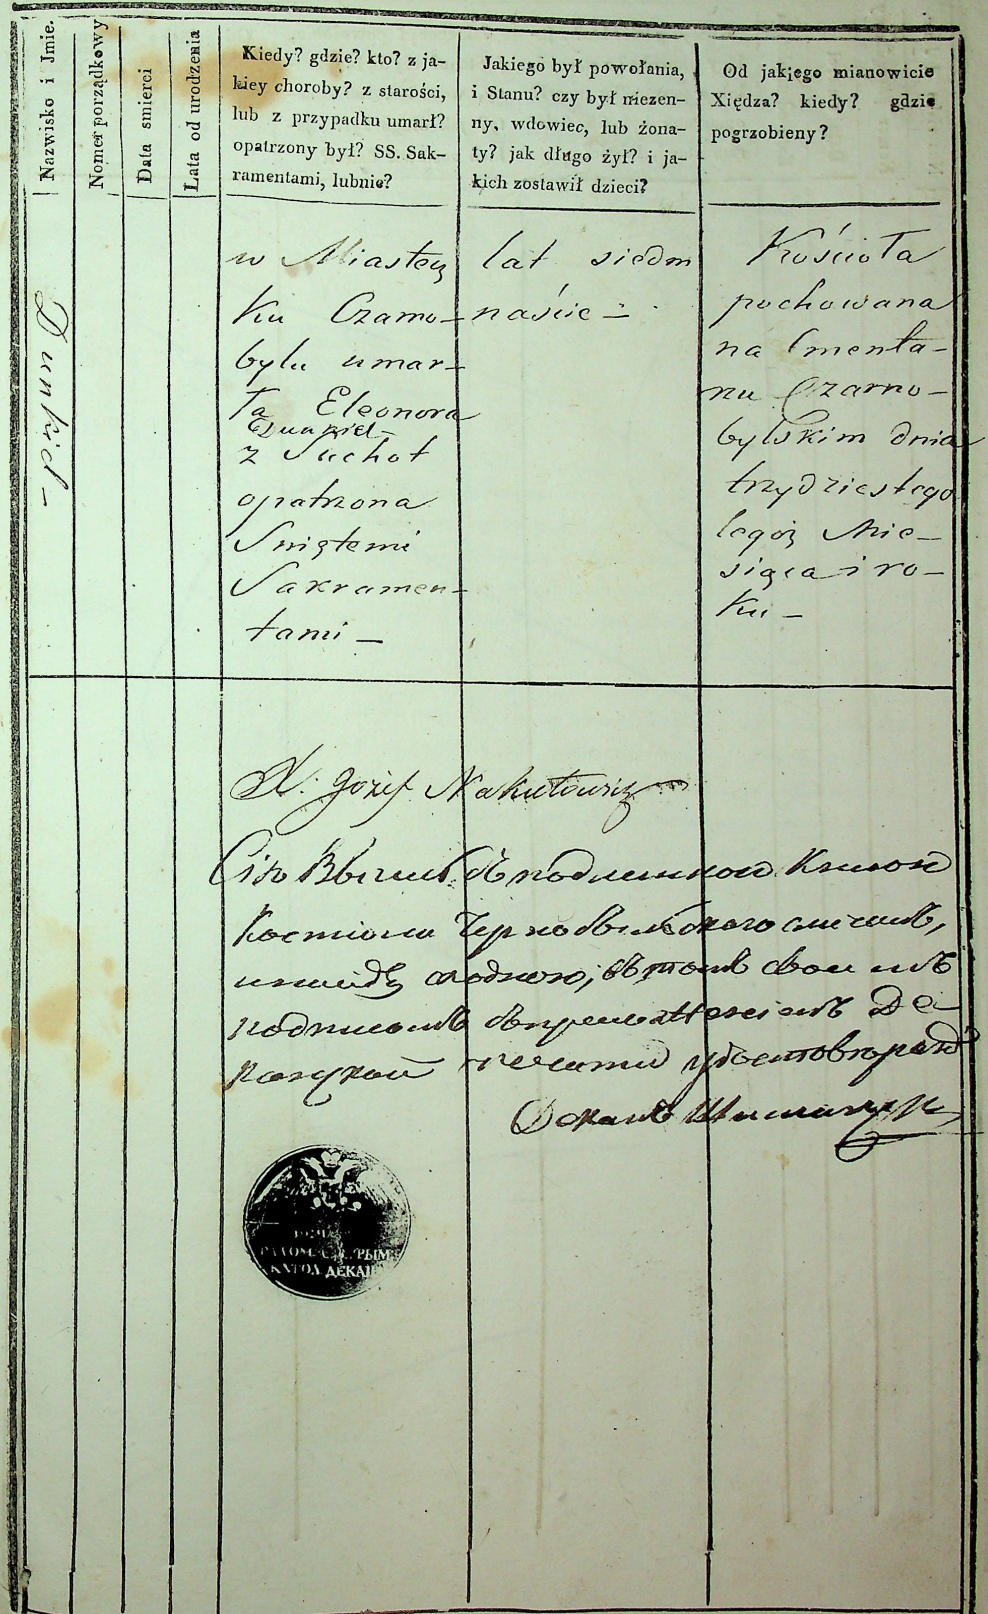 Nazwisko i Jmie.
Nomer porządkowy
Data smierci
Lata od urodzenia
Kiedy? gdzie? kto? z ja-
kiey choroby? z starości,
lub z przypadku umarł?
opatrzony był? SS. Sak-
ramentami, lubnie?
Jakiego był powołania,
i Stanu? czy był niezen-
ny, wdowiec, lub żona-
ty? jak długo żył? i ja-
kich zostawił dzieci?
Od jakiego mianowicie
Xiędza? kiedy? gdzie
pogrzobieny?
Dunkiel –
w Miastecz
ku Czarno-
bylu umar-
ła Eleonora
Dunkiel –
z Suchot
opatrzona
Swiętemi
Sakramen-
tami –
lat siedm
naście –
Kościoła
pochowana
na Cmenta-
rzu Czarno-
bylskim dnia
trzydziestego
tegoż Mie-
siąca i ro-
ku –
X. Józef Nakutowicz
Сію съ подлинною Книгою
Костіола Чернобыльского
сходною, въ томъ своимъ
подписомъ съ приложеніемъ Де
канской печати удостовѣряю
Деканъ
РЫМ
КАТОЛ ДЕКАН